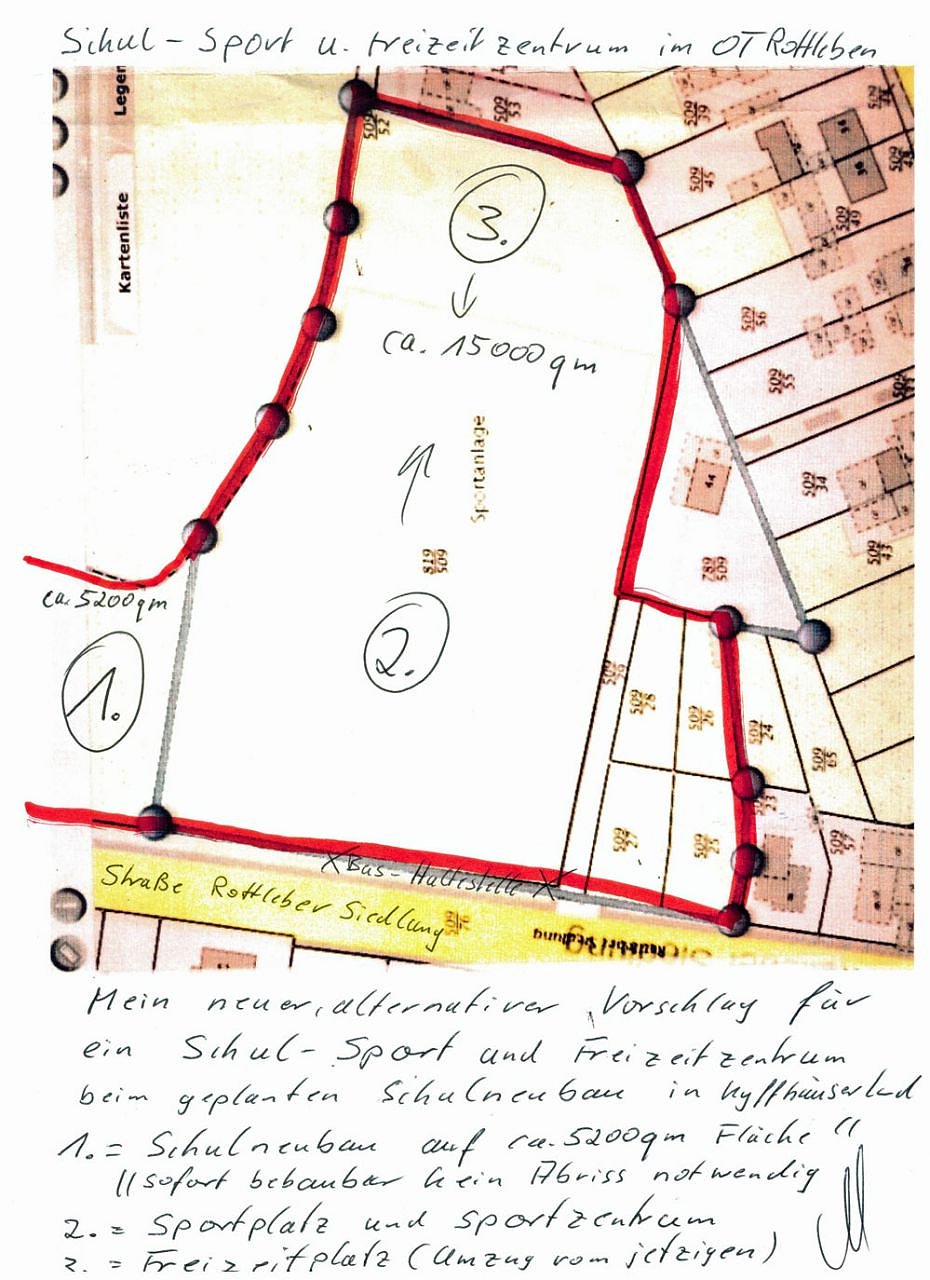 Schul-Sport u. Freizeitzentrum im OT Rottleben
Legen
Kartenliste
509
52
509
53
509
39
509
45
509
49
3.
ca. 15000qm
509
56
509
55
Sportanlage
44
509
34
509
43
819
509
789
509
ca. 5200qm
1.
2.
509
28
509
26
509
24
509
65
509
23
509
27
509
25
509
57
XBus-Haltestelle X
Straße Rottleber Siedlung
Mein neuer, alternativer Vorschlag für
ein Schul-Sport und Freizeitzentrum
beim geplanten Schulneubau in Kyffhäuserland
1. = Schulneubau auf ca. 5200qm Fläche //
//sofort bebaubar kein Abriss notwendig
2. = Sportplatz und Sportzentrum
3. = Freizeitplatz (Umzug vom jetzigen)